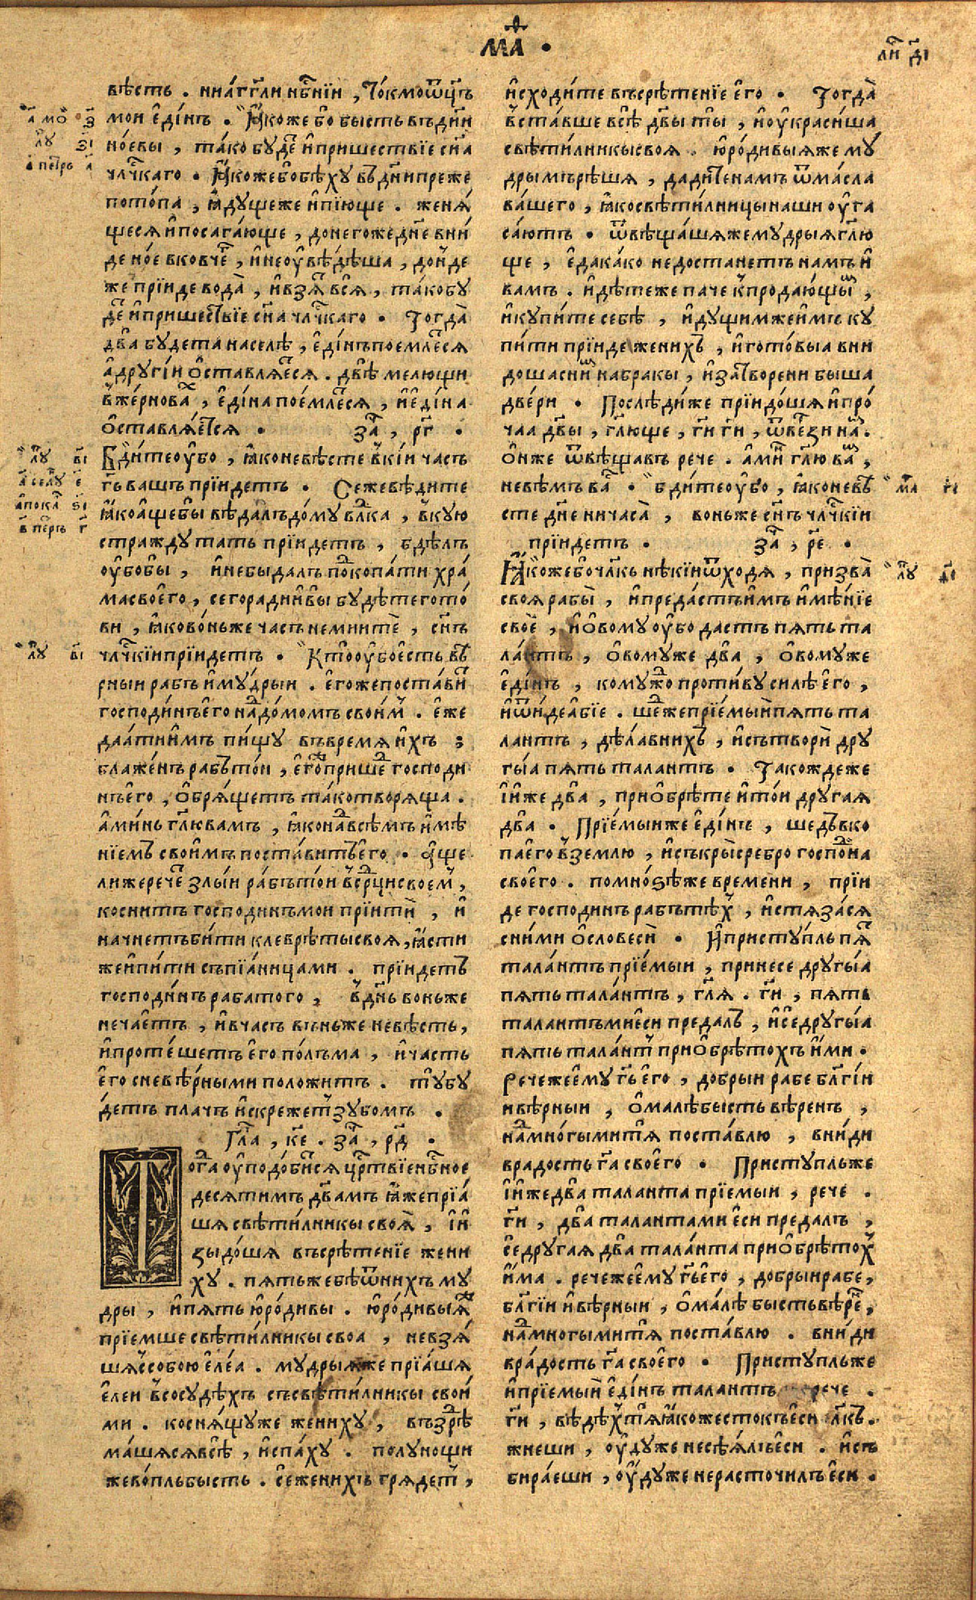 МА҃ .
ли҃ д҃і
вѣсть . ни а҆́гг҃ли нб҃нїи , то́кмо ѿц҃ъ
мои є҆ди́нъ . Ꙗ҆́коже бо бысть въ дн҃и
но́евы , та́ко бу́де҆ и҆ пришествїе сн҃а
чл҃чкаго . Ꙗ҆́коже бо бѣ́ху въ дн҃и преже
пото́па , ꙗ҆ду́ще же и҆ пїю́ще . женѧ́
щесѧ и҆ посага́юще , до него́же дн҃е вни́
де но́е в ковче҆ , и҆ не оу҆вѣ́дѣша , до́нде
же прїи́де вода̀ , и҆ взѧ҆ всѧ҆ , та́ко бу
де҆ и҆ прише́ствїе сн҃а чл҃чкаго . Тогда̀
два̀ бу́дета на селѣ̀ , є҆ди́нъ пое́млетсѧ
а҆ други́и ѡ҆ставлѧ́етсѧ . двѣ̀ ме́лющи
в же́рнова҆ , є҆ди́на пое́млетсѧ , и҆ є҆ди́на
ѡ҆ставлѧ́етсѧ . за҃ , рг҃ .
Бди́те оу҆́бо , ꙗ҆́ко не вѣ́сте в кі́и часъ
г҃ь вашъ прїи́детъ . Се же вѣ́дите
ꙗ҆́ко а҆́ще бы вѣ́далъ до́му влⷣка , в ку́ю
стра́жду та́ть прїи́детъ , бдѣ́лъ
оу҆́бо бы , и҆ не бы да́лъ подкопа́ти хра́
ма своего̀ , сего ра́ди и҆ вы бу́дѣте гото́
ви , ꙗ҆́ко во́ньже часъ не мнитѐ , сн҃ъ
чл҃чкїи прїи́детъ . Кто оу҆́бо є҆́сть вѣ
рныи рабъ и҆ му́дрыи . є҆го́же поста́ви
господи́нъ є҆го̀ над до́момъ свои҆́м . є҆́же
даа́ти и҆мъ пи́щу въ вре́мѧ и҆хъ ;
блаже́нъ ра́бъ то́и , є҆го́же прише҆ господи
нъ є҆го , ѡ҆брѧ́щетъ та́ко творѧ́ща .
а҆ми́нь гл҃ю вамъ , ꙗ҆́ко над всѣ́мъ и҆мѣ́
нїемъ свои҆мъ поста́витъ є҆го . а҆́ще
ли же рече҆ злы́и ра́бъ то́и в срⷣци своем҆ ,
косни́тъ господи́нъ мои прїити҆ , и҆
начне́тъ би́ти клевре́ты своѧ̀ , ꙗ҆́сти
же и҆ пи́ти съ пїѧ́ницами . прїи́детъ
господи́нъ раба̀ того̀ , в дн҃ь во́ньже
не ча́етъ , и҆ в часъ во́ньже не вѣ́сть ,
и҆ проте́шетъ є҆го по́лъма , и҆ ча́сть
є҆го с невѣ́рными поло́житъ . ту̀ бу
детъ пла́чъ и҆ скреже́тъ зубо́мъ .
Гла҃ , ке҃ . за҃ , рд҃ .
Тогда оу҆подо́бисѧ црⷭ҇твїе нбⷭ҇ное
десѧти́мъ дв҃амъ ꙗ҆́же прїѧ́
шѧ свѣти́лникы своѧ̀ , и҆ и
зыдо́шѧ въ срѣ́тенїе жени
ху̀ . пѧ́ть же бѣ̀ ѿ ни́хъ му
дры , и҆ пѧ́ть ю҆ро́дивы . ю҆ро́дивыѧ же
прїе́мше свѣти́лникы своа , не взѧ́
шѧ с собо́ю є҆ле́а . му́дрыѧ же прїѧ́шѧ
є҆ле́и в сосу́дѣхъ съ свѣти́лникы свои́
ми . коснѧ́щу же жениху̀ , въздрѣ
ма́шѧсѧ всѣ̀ , и҆ спа́ху . полу́нощи
же во́пль бысть . се жени́хъ грѧде́тъ ,
и҆сходи́те въ срѣ́тенїе є҆го . Тогда̀
въста́вше всѣ̀ дв҃ы ты̀ , и҆ оу҆краси́ша
свѣти́лникы своѧ . ю҆ро́дивыѧ же му́
дрымъ рѣ́шѧ , дади́те намъ ѿ ма́сла
ва́шего , ꙗ҆́ко свѣти́лницы наши оу҆га
са́ютъ . ѿвѣща́шѧ же му́дрыѧ гл҃ю
ще , є҆да ка́ко недоста́нетъ намъ и҆
вамъ . и҆дѣ́те же па́че к продаю́щы҆м ,
и҆ купи́те себѣ̀ , и҆ду́щим же и҆мъ ку
пи́ти прїи́де жени́хъ , и҆ гото́выа вни
до́ша с ни҆м на бра́кы , и҆ затво́рени бы́ша
две́ри . Послѣ́ди же прїидо́ша и҆ про́
чаа дв҃ы , гл҃юще , г҃и г҃и , ѿве́рзи на҆м .
Ѡ҆н же ѿвѣща́въ рече . а҆ми҆н гл҃ю ва҆м ,
не вѣ́мъ ва҆с . бди́те оу҆́бо , ꙗ҆́ко не вѣ
сте дн҃е ни часа̀ , во́ньже сн҃ъ чл҃чкїи
прїи́детъ . за҃ , ре҃ .
Ꙗ҆́коже бо чл҃къ нѣ́кїи ѿходѧ̀ , призва̀
своѧ рабы̀ , и҆ преда́сть и҆мъ и҆мѣ́нїе
своѐ , и҆ ѻ҆́вому оу҆́бо дасть пѧ́ть та
ла́нтъ , ѻ҆́вому же два̀ , ѻ҆́вому же
є҆ди́нъ , кому́ждо проти́ву си́лѣ є҆го ,
и҆ ѿи́де а҆́бїе . ше́д же прїе́мыи пѧ́ть та
ла́нтъ , дѣ́ла в ни́хъ , и҆ сътвори̂ дру
гы́а пѧ́ть тала́нтъ . Та́кожде же
и҆ и́же два̀ , прїѡбрѣ́те и҆ то́и друга́ѧ
два̀ . Прїе́мыи же є҆ди́нъ , ше́дъ вко
па є҆го̀ в зе́млю , и҆ съкры̀ сребро̀ господи́на
своего̀ . по мно́ѕѣ же вре́мени , прїи
де господи́нъ ра́бъ тѣ́хъ , и҆ стѧза́сѧ
с ни́ми ѡ҆ словеси̂ . И҆ присту́пль пѧ́ть
тала́нтъ прїе́мыи , принесѐ другы́а
пѧ́ть тала́нтъ , гл҃ѧ . г҃и , пѧ́ть
тала́нтъ ми є҆си преда́лъ , и҆ сѐ другы́а
пѧ́ть тала́нтъ прїѡбрѣто́хъ и҆́ми .
Рече же є҆му г҃ь є҆го , до́брыи ра́бе бл҃гїи
и вѣ́рныи , ѡ҆ ма́лѣ бысть вѣ́ренъ ,
над мно́гыми тѧ̀ поста́влю , вни́ди
в ра́дость г҃а своего̀ . Присту́пль же
и҆ и́же два̀ тала́нта прїе́мыи , рече .
г҃и , два̀ тала́нта ми є҆си преда́лъ ,
сѐ друга́ѧ два̀ тала́нта прїѡбрѣто́х
и҆́ма . рече же є҆му г҃ь є҆го , до́брыи ра́бе ,
бл҃гїи и҆ вѣ́рныи , ѡ҆ ма́лѣ бысть вѣ́ре҆н ,
над мно́гыми тѧ̀ поста́влю . вни́ди
в ра́дость г҃а своего̀ . Присту́пль же
и҆ прїе́мыи є҆ди́нъ тала́нтъ рече .
г҃и , вѣ́дѣхъ тѧ̀ ꙗ҆́ко же́стокъ є҆си чл҃къ .
жне́ши , оу҆ду́же не сѣ́ѧлъ є҆си . и҆ съ
бира́еши , оу҆ду́же не расточи́лъ є҆си .